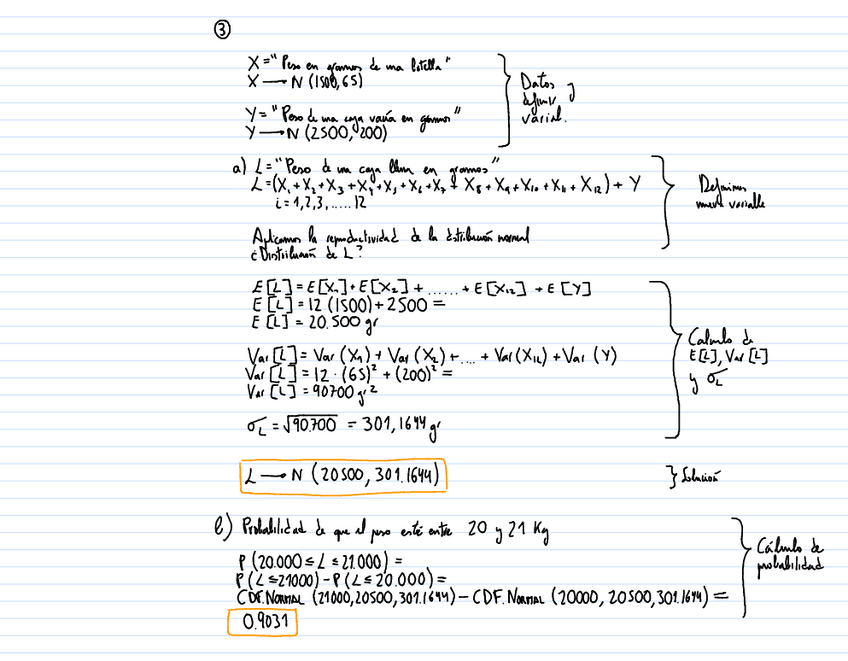 ③
X = "Peso en gramos de una botella"
X → N (1500, 65)
Y = "Peso de una caja vacía en gramos"
Y → N (2500, 200)
Datos y
definir
variabl.
a) L = "Peso de una caja llena en gramos"
L = (X₁ + X₂ + X₃ + X₄ + X₅ + X₆ + X₇ + X₈ + X₉ + X₁₀ + X₁₁ + X₁₂) + Y
i = 1,2,3,.....12
Definimos
nueva variable
Aplicamos la reproductividad de la distribución normal
¿Distribución de L?
E[L] = E[X₁] + E[X₂] + ...... + E[X₁₂] + E[Y]
E[L] = 12 (1500) + 2500 =
E[L] = 20.500 gr
Var[L] = Var (X₁) + Var (X₂) + .... + Var (X₁₂) + Var (Y)
Var[L] = 12 · (65)² + (200)² =
Var[L] = 90700 gr²
σL = √90.700 = 301,1644 gr
Calculo de
E[L], Var[L]
y σL
L → N (20500, 301.1644)
} Solución
b) Probabilidad de que el peso esté entre 20 y 21 Kg
P (20.000 ≤ L ≤ 21.000) =
P (L ≤ 21000) - P (L ≤ 20.000) =
CDF.NORMAL (21000, 20500, 301.1644) - CDF.NORMAL (20000, 20500, 301.1644) =
0.9031
Cálculo de
probabilidad